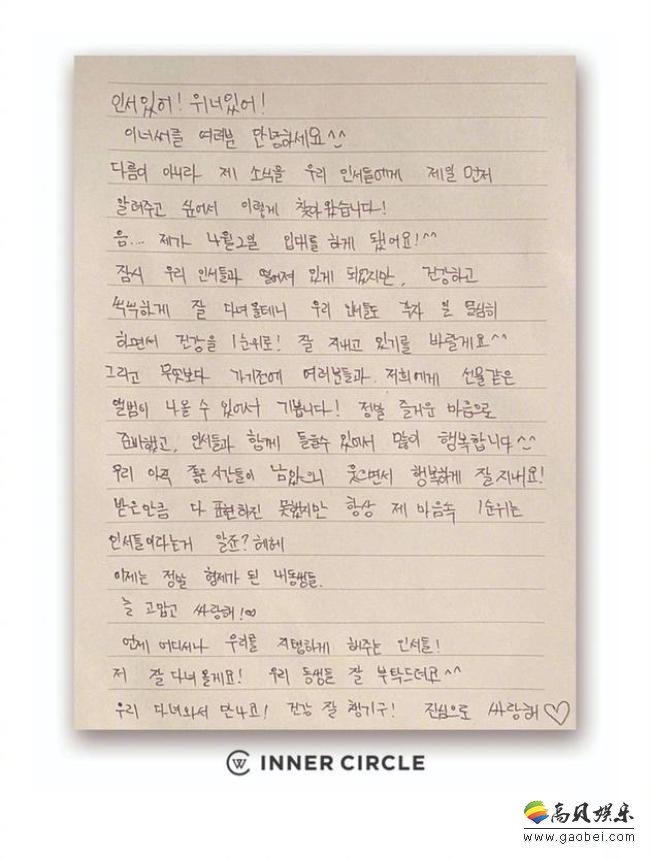 인서있어! 위너있어!
이너써클 여러분 안녕하세요^^
다름이 아니라 제 소식을 우리 인서들에게 제일 먼저
알려주고 싶어서 이렇게 찾아왔습니다!
음... 제가 4월2일 입대를 하게 됐어요!^^
잠시 우리 인서들과 떨어져 있게 되었지만, 건강하고
씩씩하게 잘 다녀올테니 우리 인서들도 각자 일 열심히
하면서 건강을 1순위로! 잘 지내고 있기를 바랄게요^^
그리고 무엇보다 가기전에 여러분들과 저희에게 선물같은
앨범이 나올 수 있어서 기쁩니다! 정말 즐거운 마음으로
준비했고, 인서들과 함께 들을수 있어서 많이 행복합니다^^
우리 아직 좋은 시간들이 남았으니 웃으면서 행복하게 잘지내요!
받은만큼 다 표현하진 못했지만 항상 제 마음속 1순위는
인서들이라는거 알죠? 헤헤
이제는 정말 형제가 된 내동생들.
늘 고맙고 싸랑해!♡
언제 어디서나 우리를 지탱하게 해주는 인서들!
저 잘 다녀올게요! 우리 동생들 잘 부탁드려요^^
우리 다녀와서 만나요! 건강 잘 챙기구! 진심으로 싸랑해♡
INNER CIRCLE
高贝娱乐
www.gaobei.com